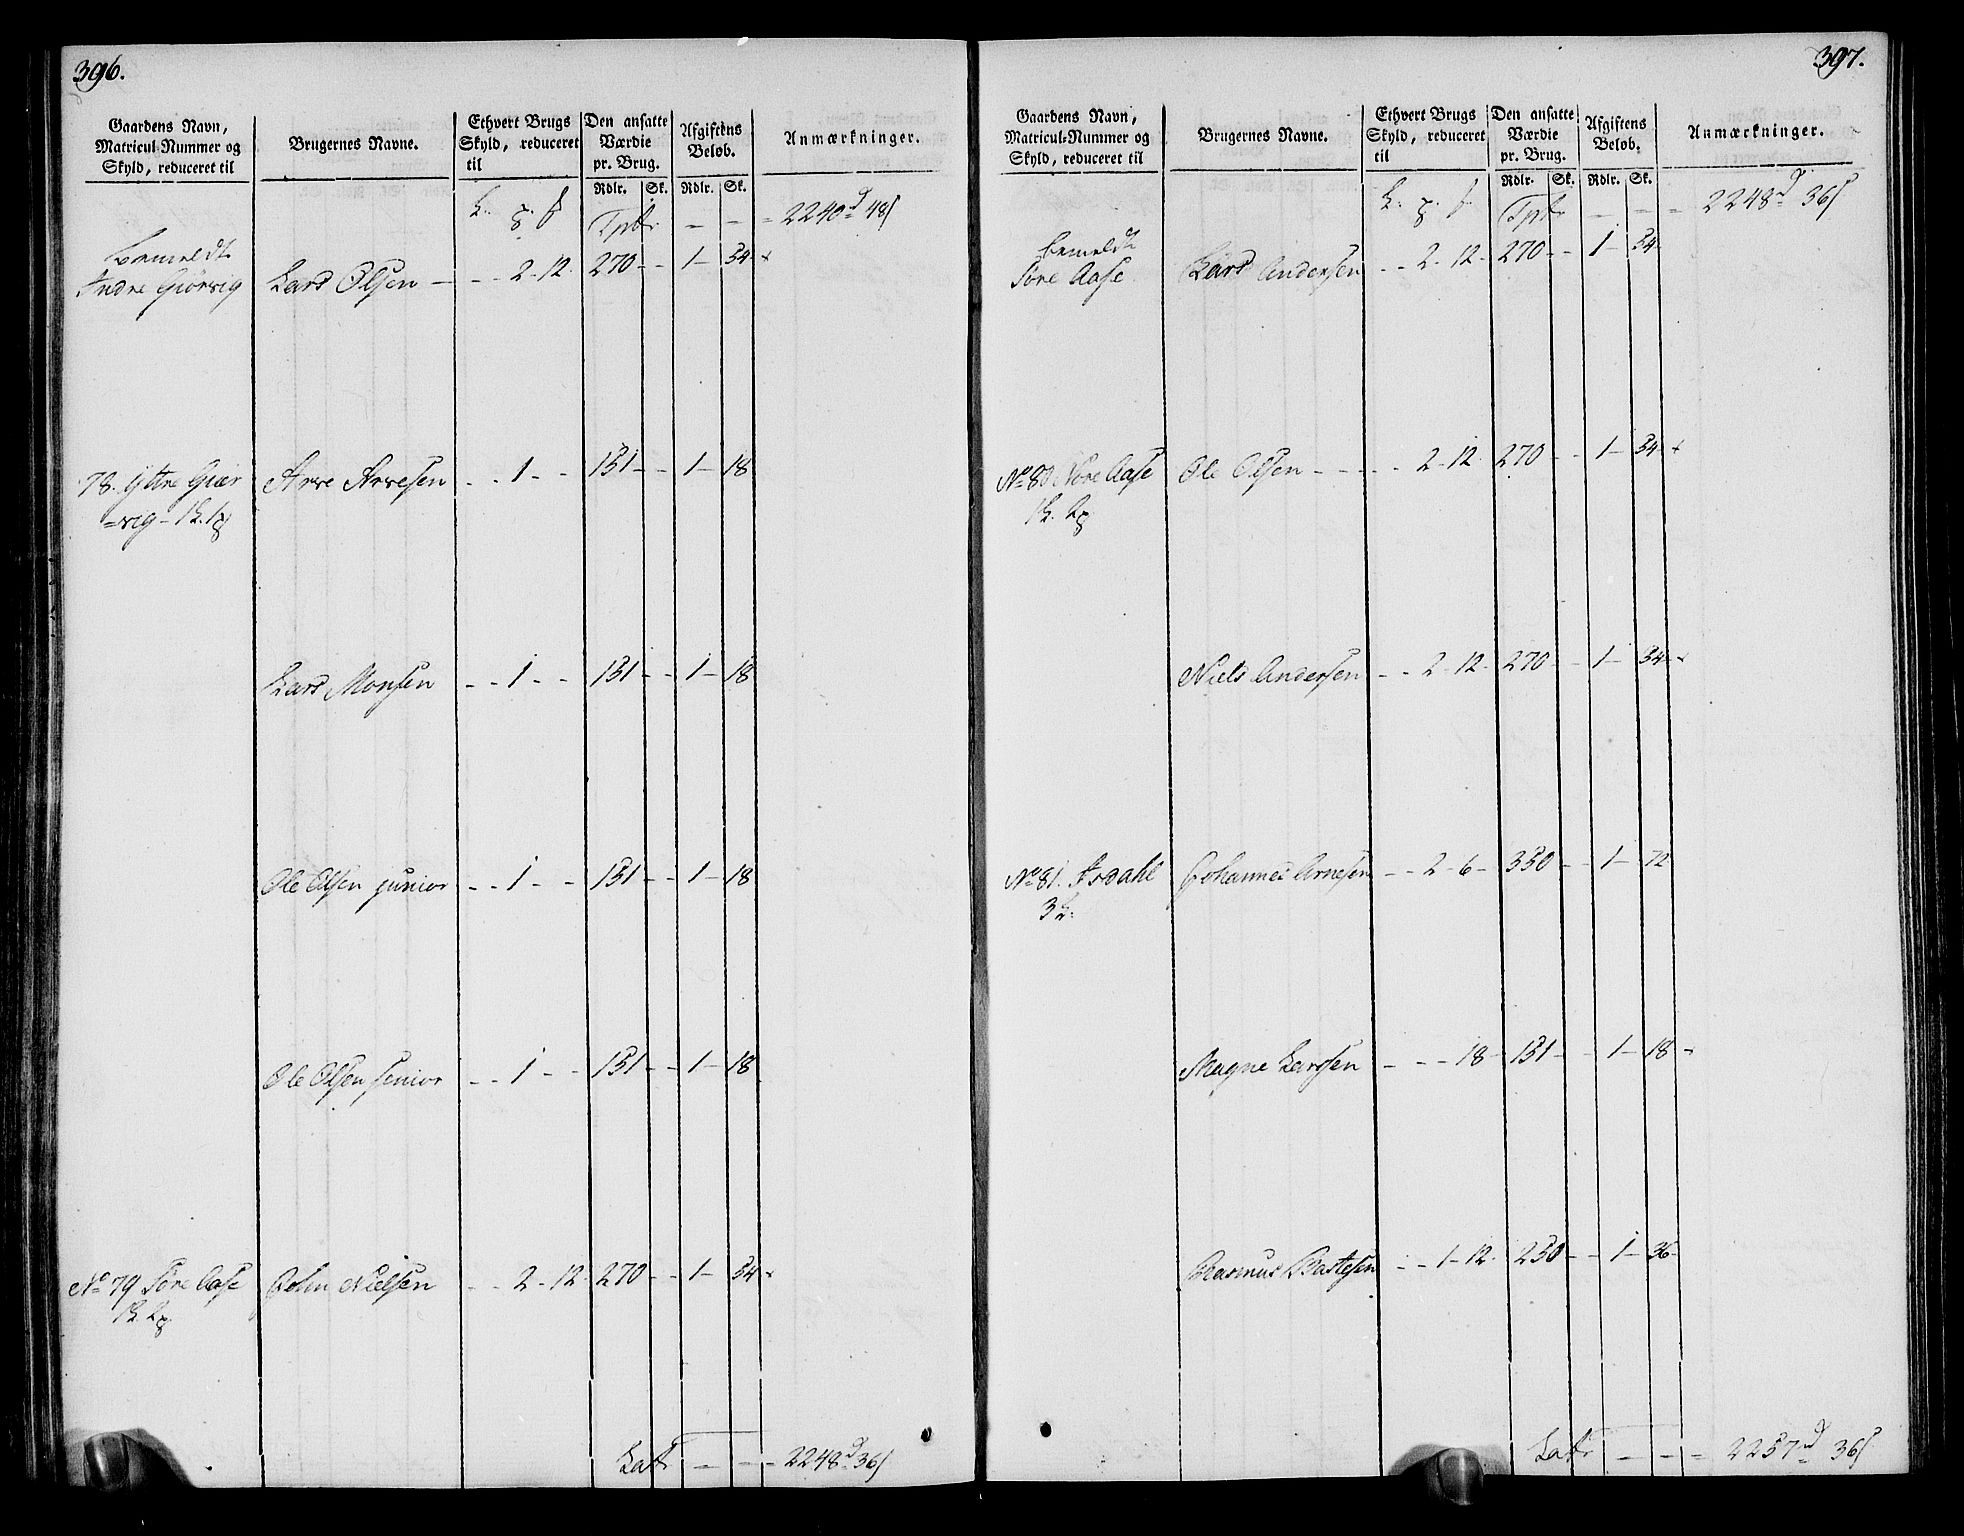 396.
Gaardens Navn, Matricul-Nummer og Skyld, reduceret til
Brugernes Navne.
Ethvert Brugs Skyld, reduceret til
Den ansatte Værdie pr. Brug.
Afgiftens Beløb.
Anmærkninger.
Rdlr. Sk. Rdlr. Sk.
Tptr. - - = 2240 d 48 s
bemeldt
Indre Giørvig Lars Olsen - - - 2 - 12 270 - - 1 - 54
78. Ytre Giær Arve Arvesen - - 1 - - 151 - - 1 - 18
=vig - 1 L. 1
Lars Monsen - - 1 - - 151 - - 1 - 18
Ole Olsen junior - - 1 - - 151 - - 1 - 18
Ole Olsen senior - - 1 - - 151 - - 1 - 18
No 79 Søre Aase John Nielsen - - 2 - 12 270 - - 1 - 54
Latr - - = 2248 d 36 s
397.
Gaardens Navn, Matricul-Nummer og Skyld, reduceret til
Brugernes Navne.
Ethvert Brugs Skyld, reduceret til
Den ansatte Værdie pr. Brug.
Afgiftens Beløb.
Anmærkninger.
Rdlr. Sk. Rdlr. Sk.
Tptr. - - = 2248 d 36 s
bemeldt
Søre Aase Lars Andersen - - 2 - 12 270 - - 1 - 54
No 80 Nore Aase Ole Olsen - - - - 2 - 12 270 - - 1 - 54
Niels Andersen - - 2 - 12 270 - - 1 - 54
No 81. Isdahl Johannes Arnesen - - 2 - 6 - 350 - - 1 - 72
3 L.
Magne Larssen - - - 18 - 151 - - 1 - 18
Rasmus Bastesen - - 1 - 12 250 - - 1 - 36
Latr - - = 2257 d 36 s